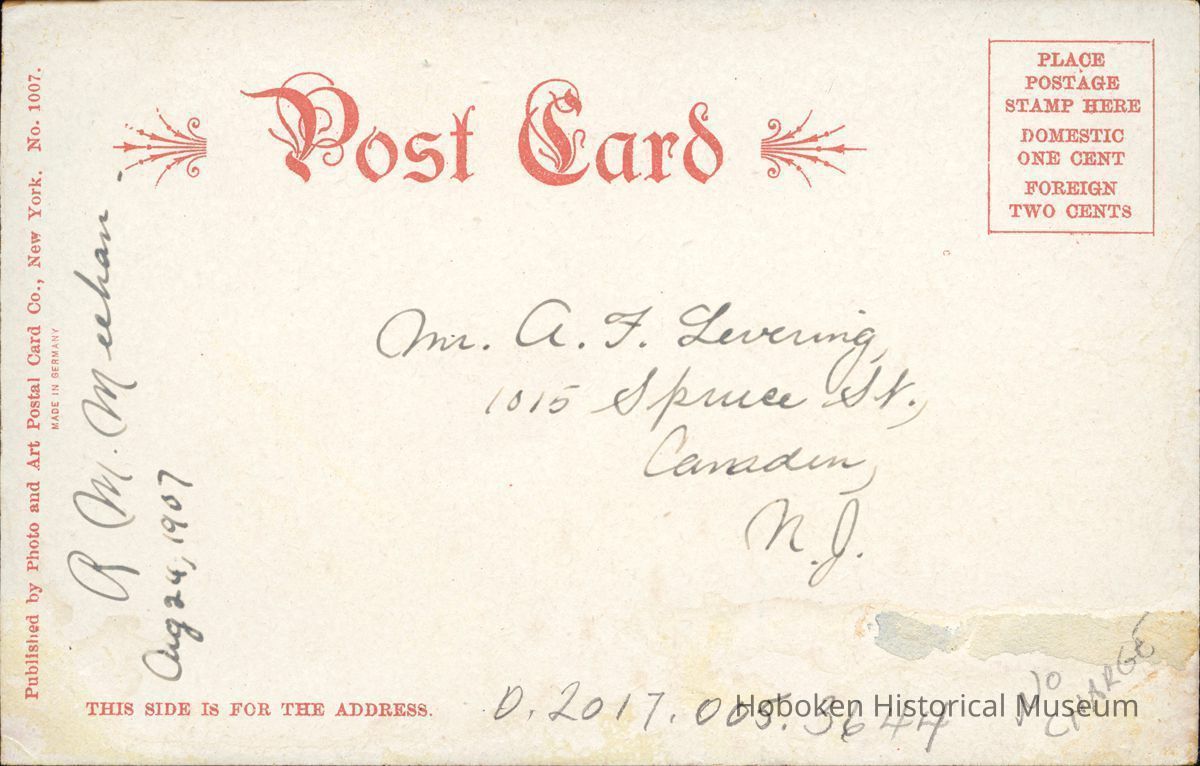 Post Card
PLACE
POSTAGE
STAMP HERE
DOMESTIC
ONE CENT
FOREIGN
TWO CENTS
Published by Photo and Art Postal Card Co., New York. No. 1007.
MADE IN GERMANY
R M. Meehan -
Aug 24, 1907
Mr. A. F. Levering,
1015 Spruce St.,
Camden,
N. J.
THIS SIDE IS FOR THE ADDRESS.
D. 2017. 005. 3644
Hoboken Historical Museum
NO
CHARGE